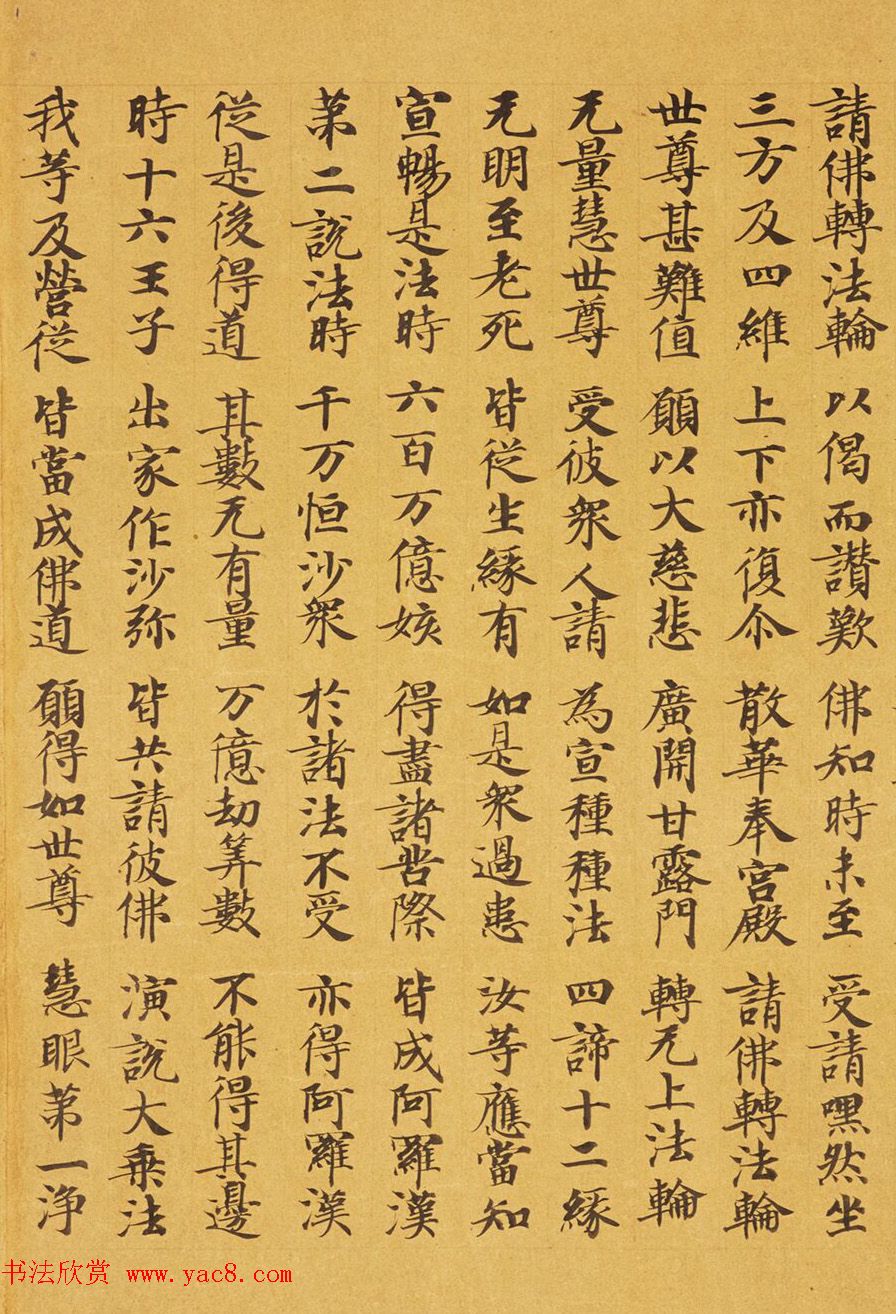 請佛轉法輪 以偈而讃歎 佛知時未至 受請嘿然坐
三方及四維 上下亦復尒 散華奉宮殿 請佛轉法輪
世尊甚難值 願以大慈悲 廣開甘露門 轉无上法輪
无量慧世尊 受彼衆人請 為宣種種法 四諦十二緣
无明至老死 皆從生緣有 如是衆過患 汝等應當知
宣暢是法時 六百万億姟 得盡諸苦際 皆成阿羅漢
第二說法時 千万恒沙衆 於諸法不受 亦得阿羅漢
從是後得道 其數无有量 万億劫筭數 不能得其邊
時十六王子 出家作沙弥 皆共請彼佛 演說大乗法
我等及營從 皆當成佛道 願得如世尊 慧眼第一淨
书法欣赏 www.yac8.com